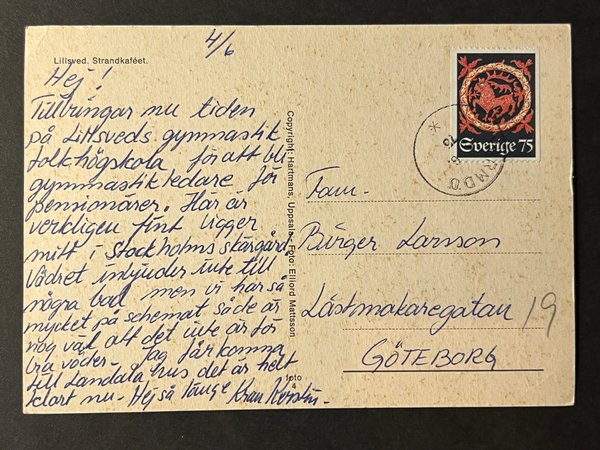 4/6
Lillsved. Strandkaféet.
Hej!
Tillbringar nu tiden
på Lillsveds gymnastik
folkhögskola för att bli
gymnastikledare för
pensionärer. Här är
verkligen fint ligger
mitt i Stockholms skärgård.
Vädret inbjuder inte till
några bad men vi har så
mycket på schemat så det är
nog väl att det inte är för
bra väder. Jag får komma
till Landala hus det är helt
klart nu - Hej så länge Kram Kerstin -
Copyright: Hartmans, Uppsala - Foto: Ellford Mattsson
foto
4
Sverige 75
Fam.
Birger Larsson
Låstmakaregatan 19
GÖTEBORG